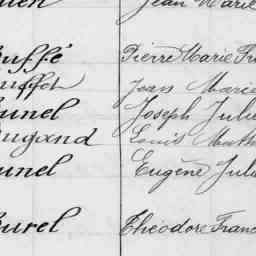 Jean Marie
uffé Pierre Marie Fr
uffot Jean Marie
unel Joseph Julie
ugand Louis Math
unel Eugène Juli
urel Théodore Franç